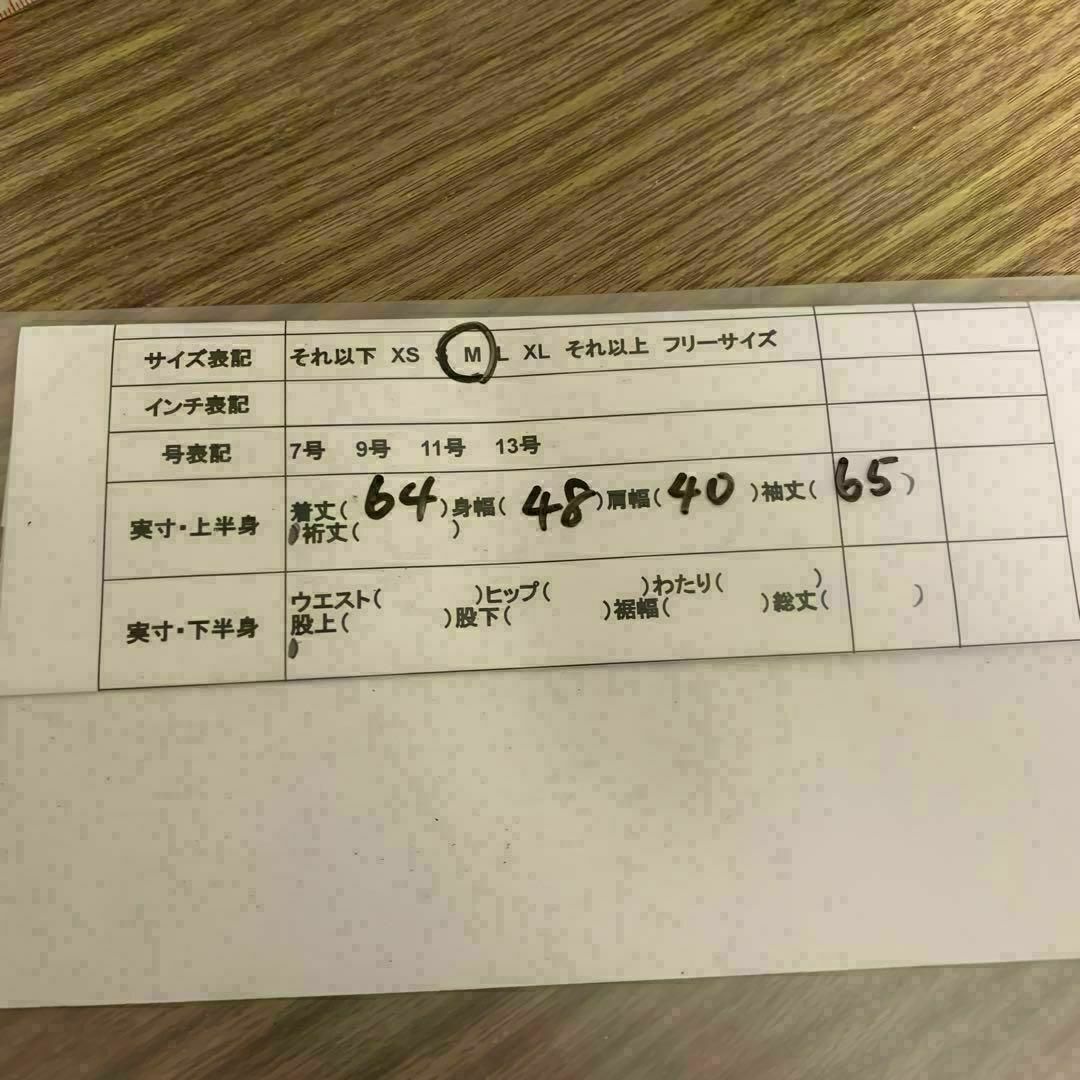 サイズ表記 それ以下 XS S M L XL それ以上 フリーサイズ
インチ表記
号表記 7号 9号 11号 13号
実寸・上半身 着丈( 64 )身幅( 48 )肩幅( 40 )袖丈( 65 )
裄丈( )
実寸・下半身 ウエスト( )ヒップ( )わたり( )
股上( )股下( )裾幅( )総丈( )